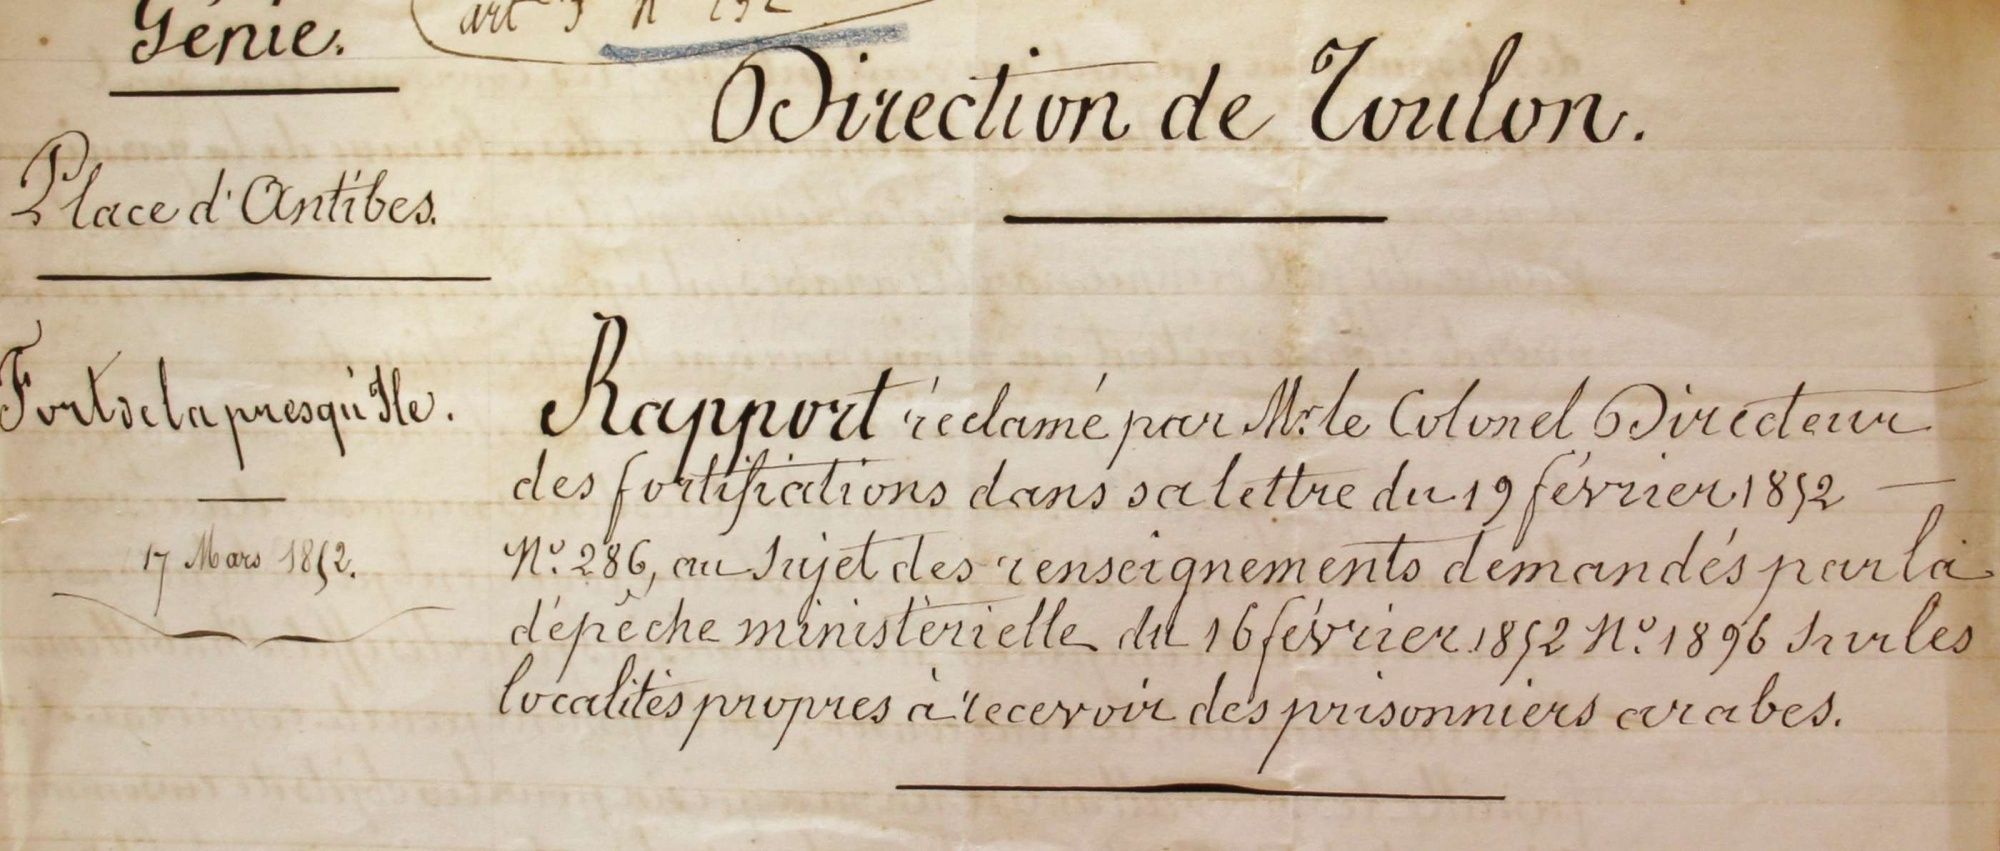 Génie.
art 3 N 292
Direction de Toulon.
Place d'Antibes.
Fort de la presqu'Ile.
17 Mars 1852.
Rapport réclamé par Mr. le Colonel Directeur
des fortifiations dans sa lettre du 19 février 1852 —
No. 286, au sujet des renseignements demandés par la
dépêche ministérielle du 16 février 1852 No. 1896 sur les
localités propres à recevoir des prisonniers arabes.